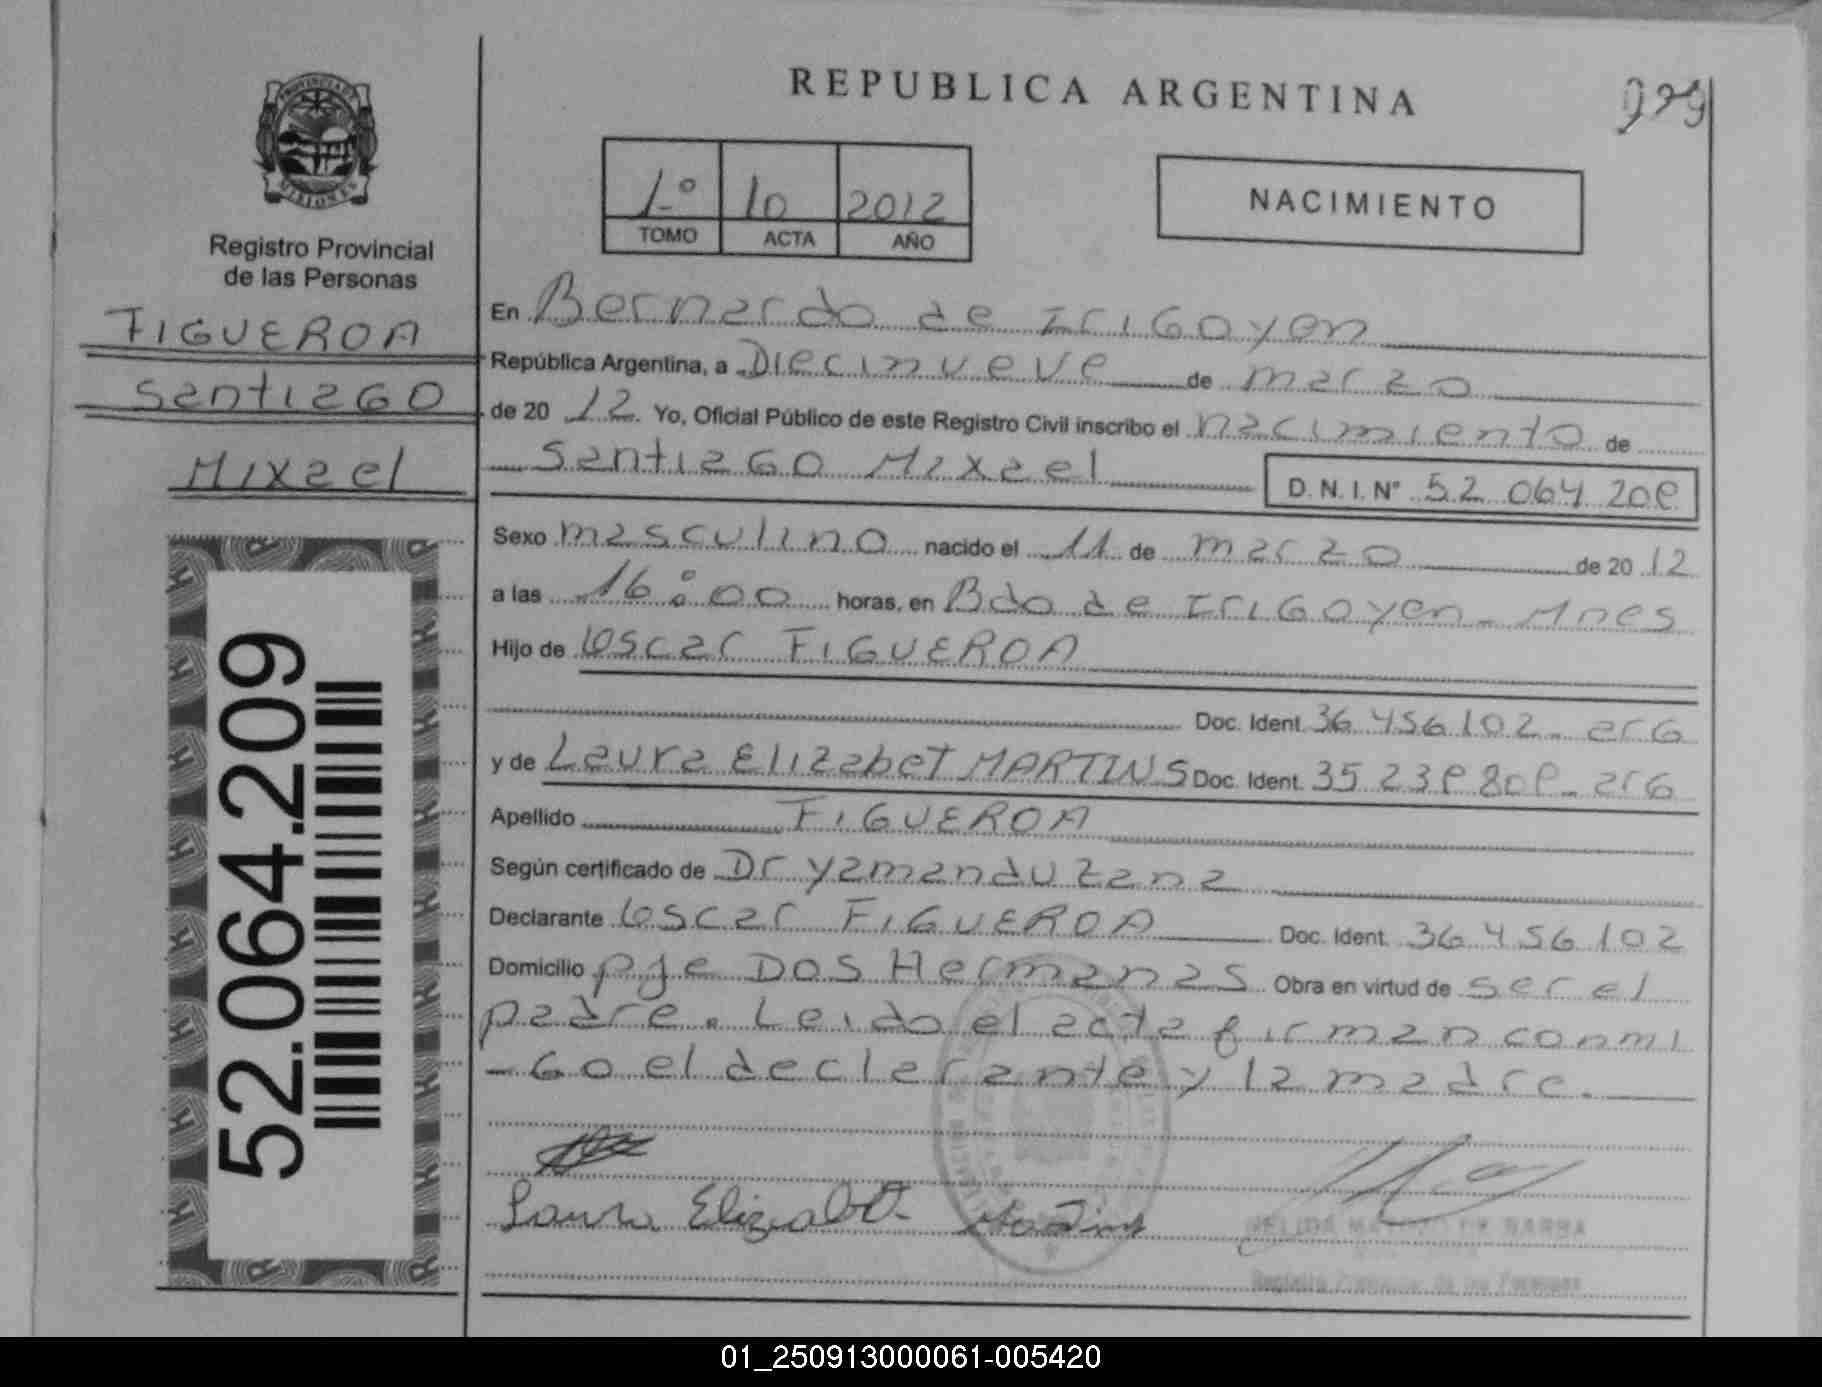 REPUBLICA ARGENTINA
979
PROVINCIA DE
MISIONES
Registro Provincial
de las Personas
FIGUEROA
Santiago
Mixael
52.064.209
1º 10 2012
TOMO ACTA AÑO
NACIMIENTO
En Bernardo de Irigoyen
República Argentina, a Diecinueve de marzo
de 20 12 Yo, Oficial Público de este Registro Civil inscribo el nacimiento de
Santiago Mixael D.N.I. Nº 52 064 209
Sexo masculino nacido el 11 de marzo de 20 12
a las 16:00 horas, en Bdo de Irigoyen - Mnes
Hijo de Oscar FIGUEROA
Doc. Ident. 36 456 102 - arg
y de Laura Elizabet MARTINS Doc. Ident. 35 239 809 - arg
Apellido FIGUEROA
Según certificado de Dr Yamandu Zana
Declarante Oscar FIGUEROA Doc. Ident. 36 456 102
Domicilio pje Dos Hermanas Obra en virtud de ser el
padre. Leido el acta firman conmi
-go el declarante y la madre.
Laura Elizabet Martins
NELIDA DE BARBA
Registro Provincial de las Personas
01_250913000061-005420